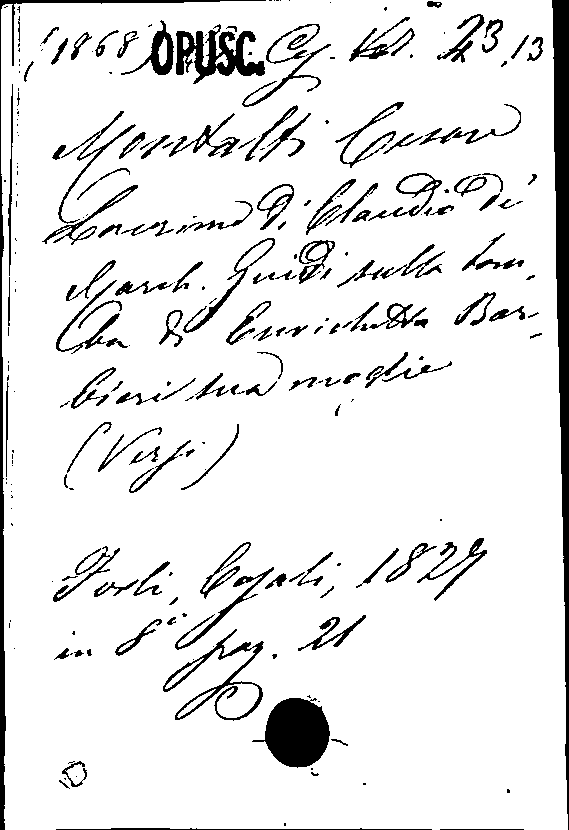 (1868) OPUSC. Cg. Vol. 23,13
Montalti Cesare
Lacrime di Claudio Di
March. Guidi sulla tom-
ba di Enrichetta Bar-
bieri sua moglie
(Versi)
Forli, Casali, 1829
in 8° pag. 21